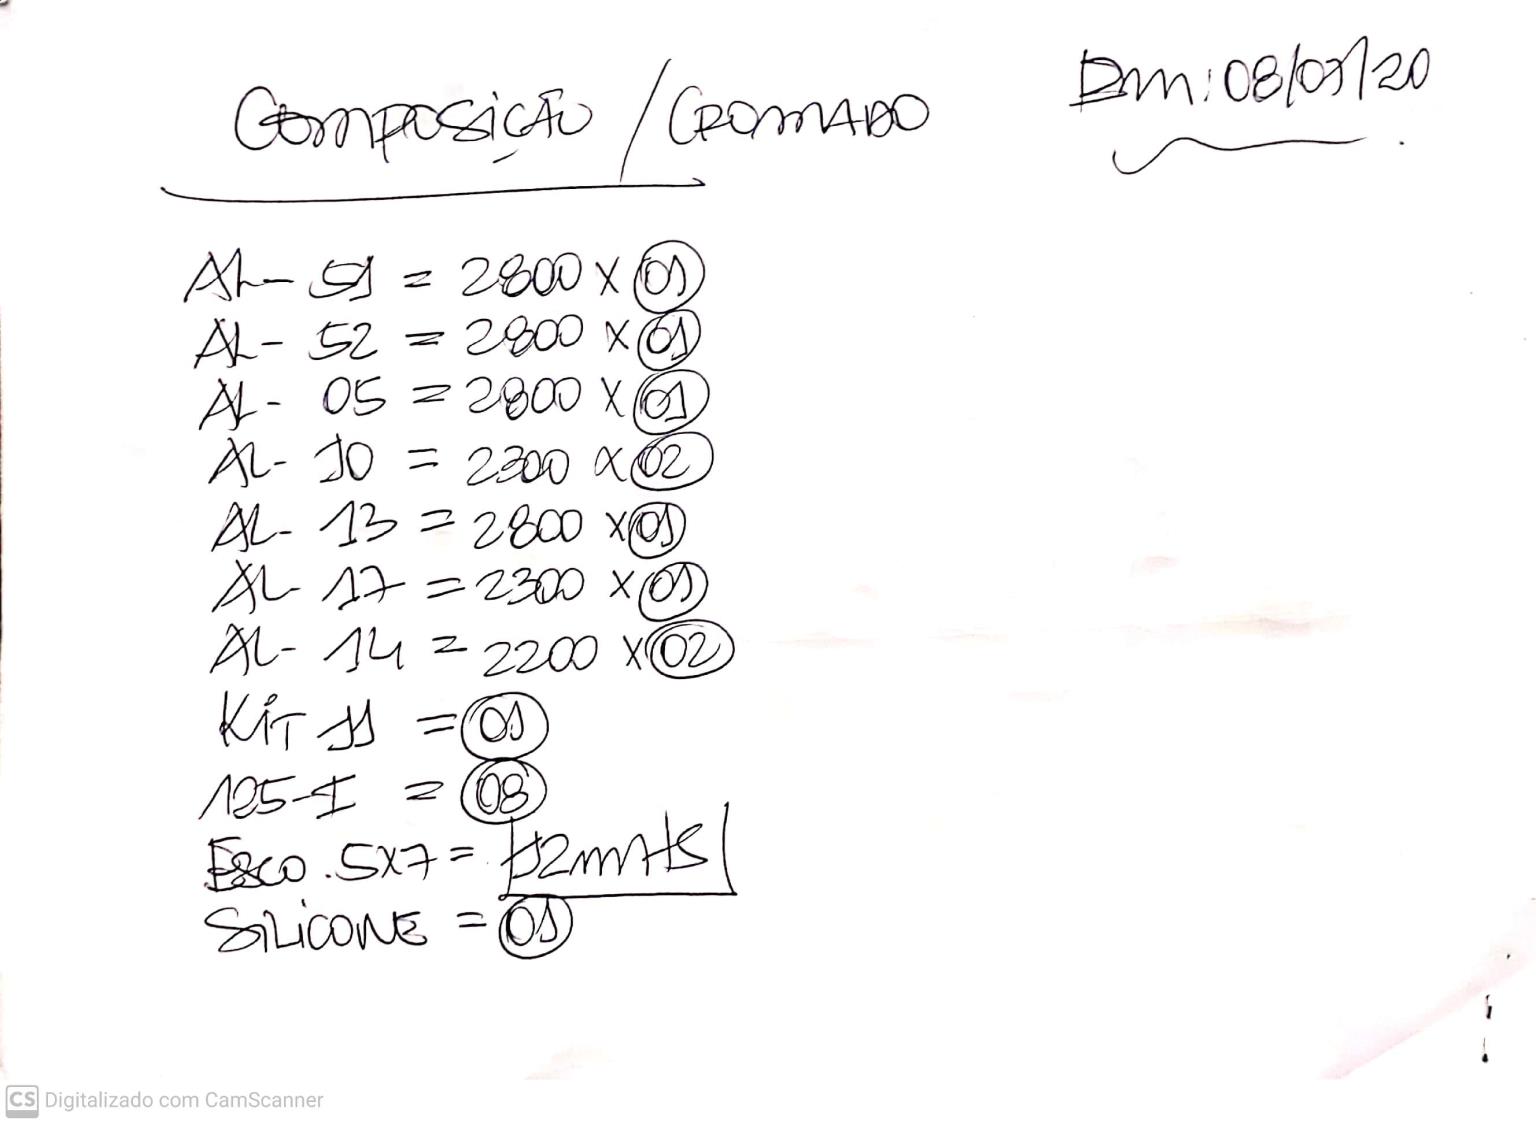 COMPOSIÇÃO / CROMADO
Dm: 08/07/20
AL- 51 = 2800 X 01
AL- 52 = 2800 X 01
AL- 05 = 2800 X 01
AL- 10 = 2300 X 02
AL- 13 = 2800 X 01
AL- 17 = 2300 X 01
AL- 14 = 2200 X 02
KIT 11 = 01
125-I = 08
ESCO. 5X7 = 12mts
SILICONE = 01
CS Digitalizado com CamScanner